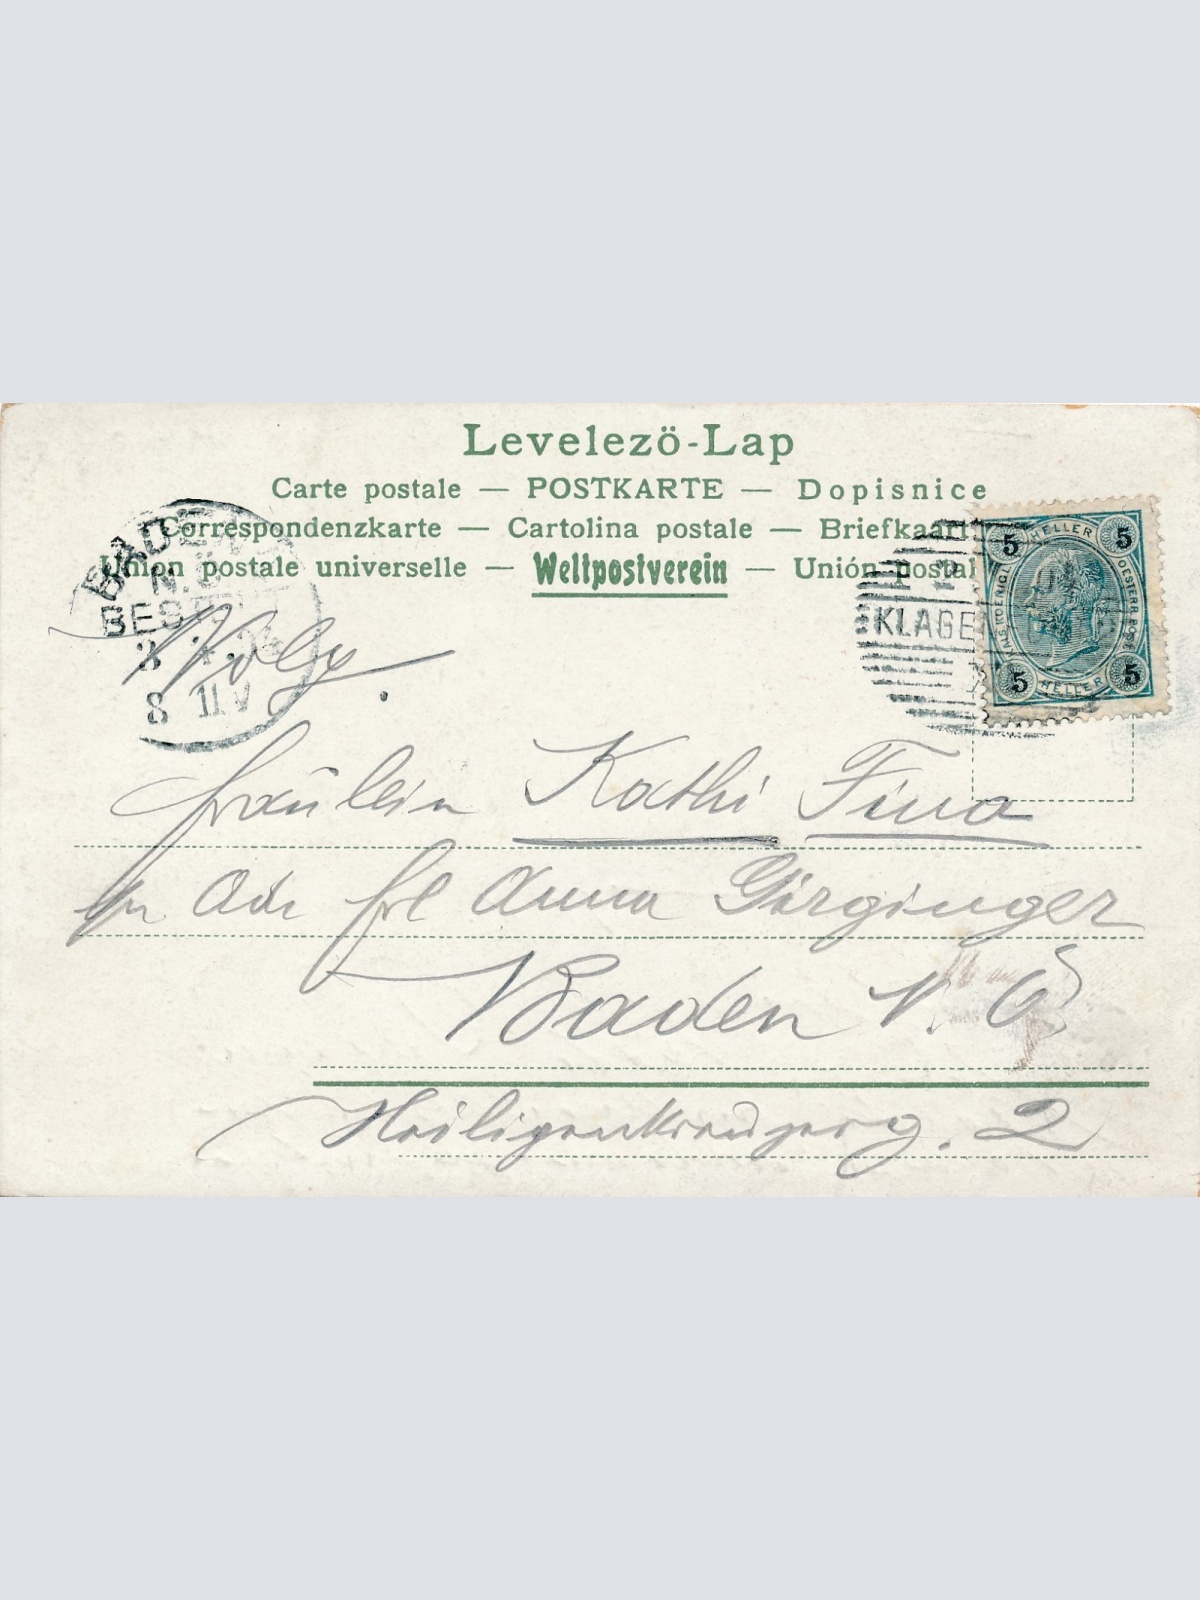 Levelezö-Lap
Carte postale — POSTKARTE — Dopisnice
Correspondenzkarte — Cartolina postale — Briefkaart
Union postale universelle — Weltpostverein — Unión postal
BADEN
N.Ö
BESTELLT
3 4 06
8 11 V
KLAGE
5 HELLER 5
5 HELLER 5
Fräulein Kathi Fina
Frl Anna Görginger
Baden N. Ö
Heiligenkreuzerg. 2